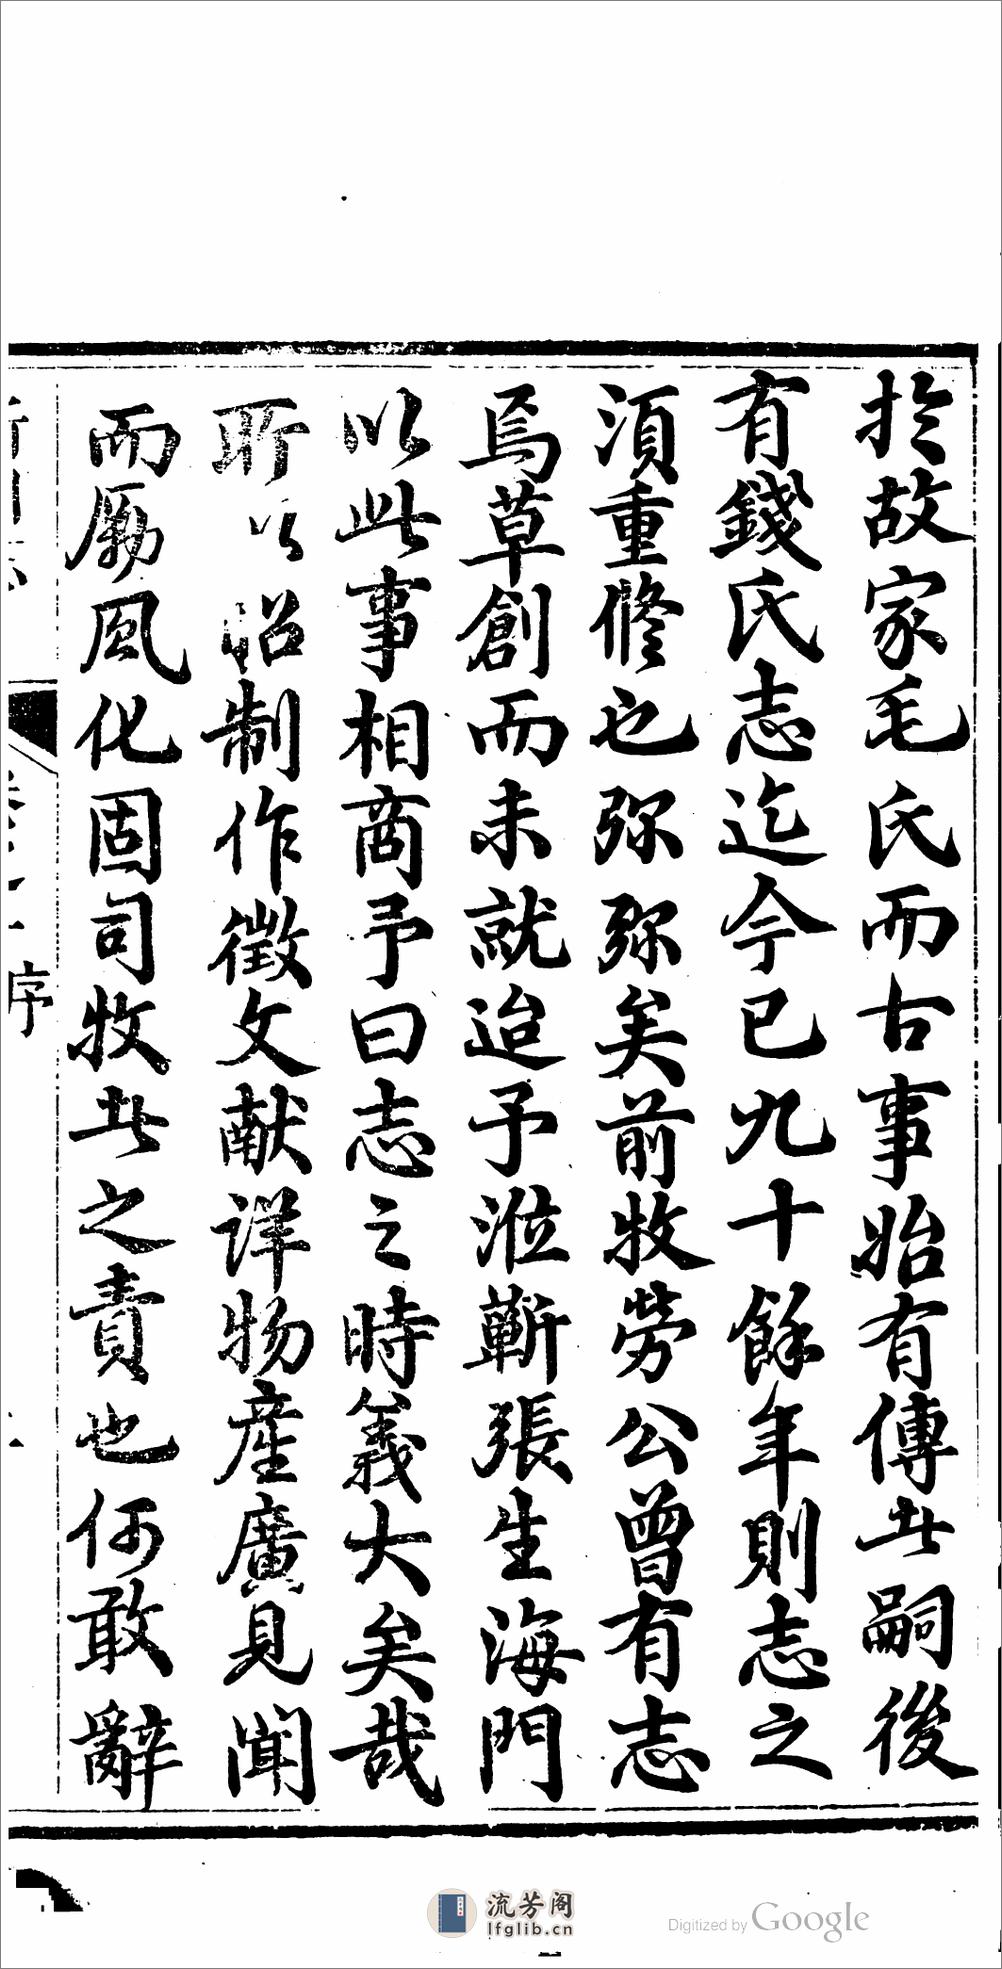 於故家毛氏而古事始有傳此嗣後
有錢氏志迄今已九十餘年則志之
須重修也弥弥矣前牧勞公曾有志
焉草創而未就迨予涖蘄張生海門
以此事相商予曰志之時義大矣哉
所以昭制作徵文献详物產廣見闻
而厲風化固司牧此之責也何敢辭
序
流芳阁
lfglib.cn
Digitized by Google